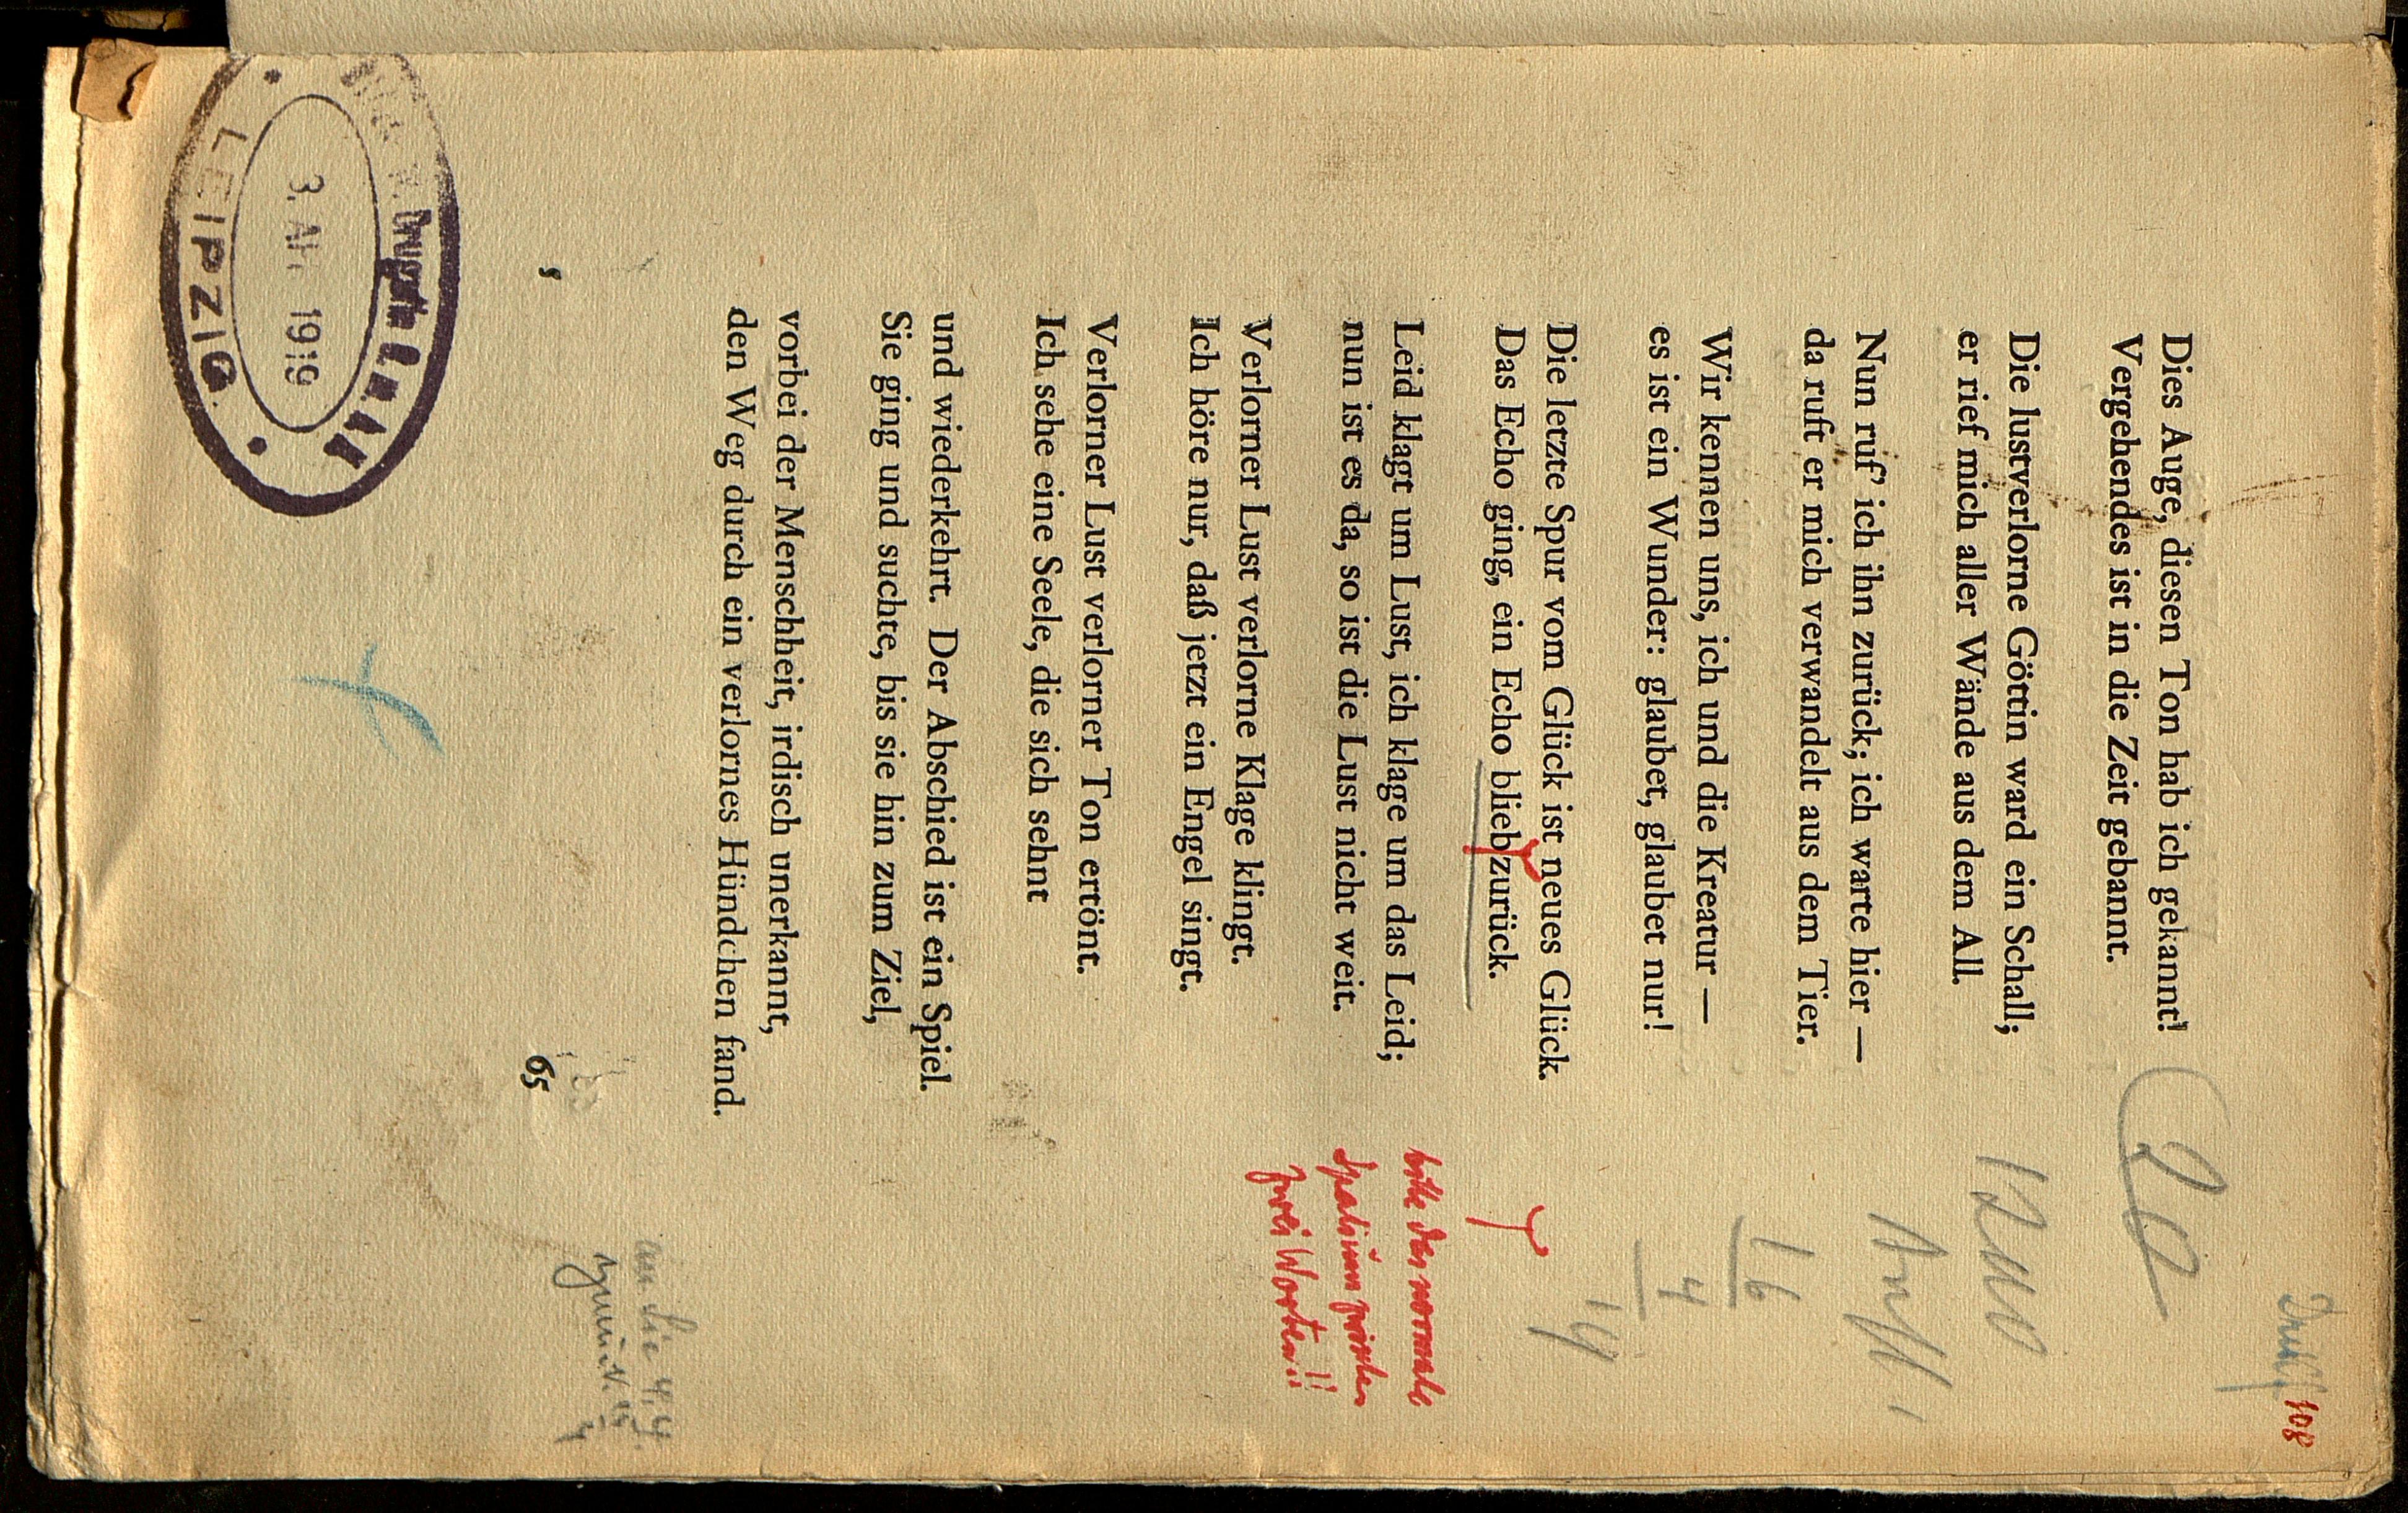 108
Dies Auge, diesen Ton hab ich gekannt!
Vergehendes ist in die Zeit gebannt.
Die lustverlorne Göttin ward ein Schall;
er rief mich aller Wände aus dem All.
Nun ruf' ich ihn zurück; ich warte hier —
da ruft er mich verwandelt aus dem Tier.
Wir kennen uns, ich und die Kreatur —
es ist ein Wunder: glaubet, glaubet nur!
16
4
Die letzte Spur vom Glück ist neues Glück.
Das Echo ging, ein Echo blieb zurück.
Leid klagt um Lust, ich klage um das Leid;
nun ist es da, so ist die Lust nicht weit.
bitte das normale
Spatium zwischen
zwei Worten!!
Verlorner Lust verlorne Klage klingt.
Ich höre nur, daß jetzt ein Engel singt.
Verlorner Lust verlorner Ton ertönt.
Ich sehe eine Seele, die sich sehnt
und wiederkehrt. Der Abschied ist ein Spiel.
Sie ging und suchte, bis sie hin zum Ziel,
vorbei der Menschheit, irdisch unerkannt,
den Weg durch ein verlornes Hündchen fand.
5
65
Drugulin
3. 1919
LEIPZIG.